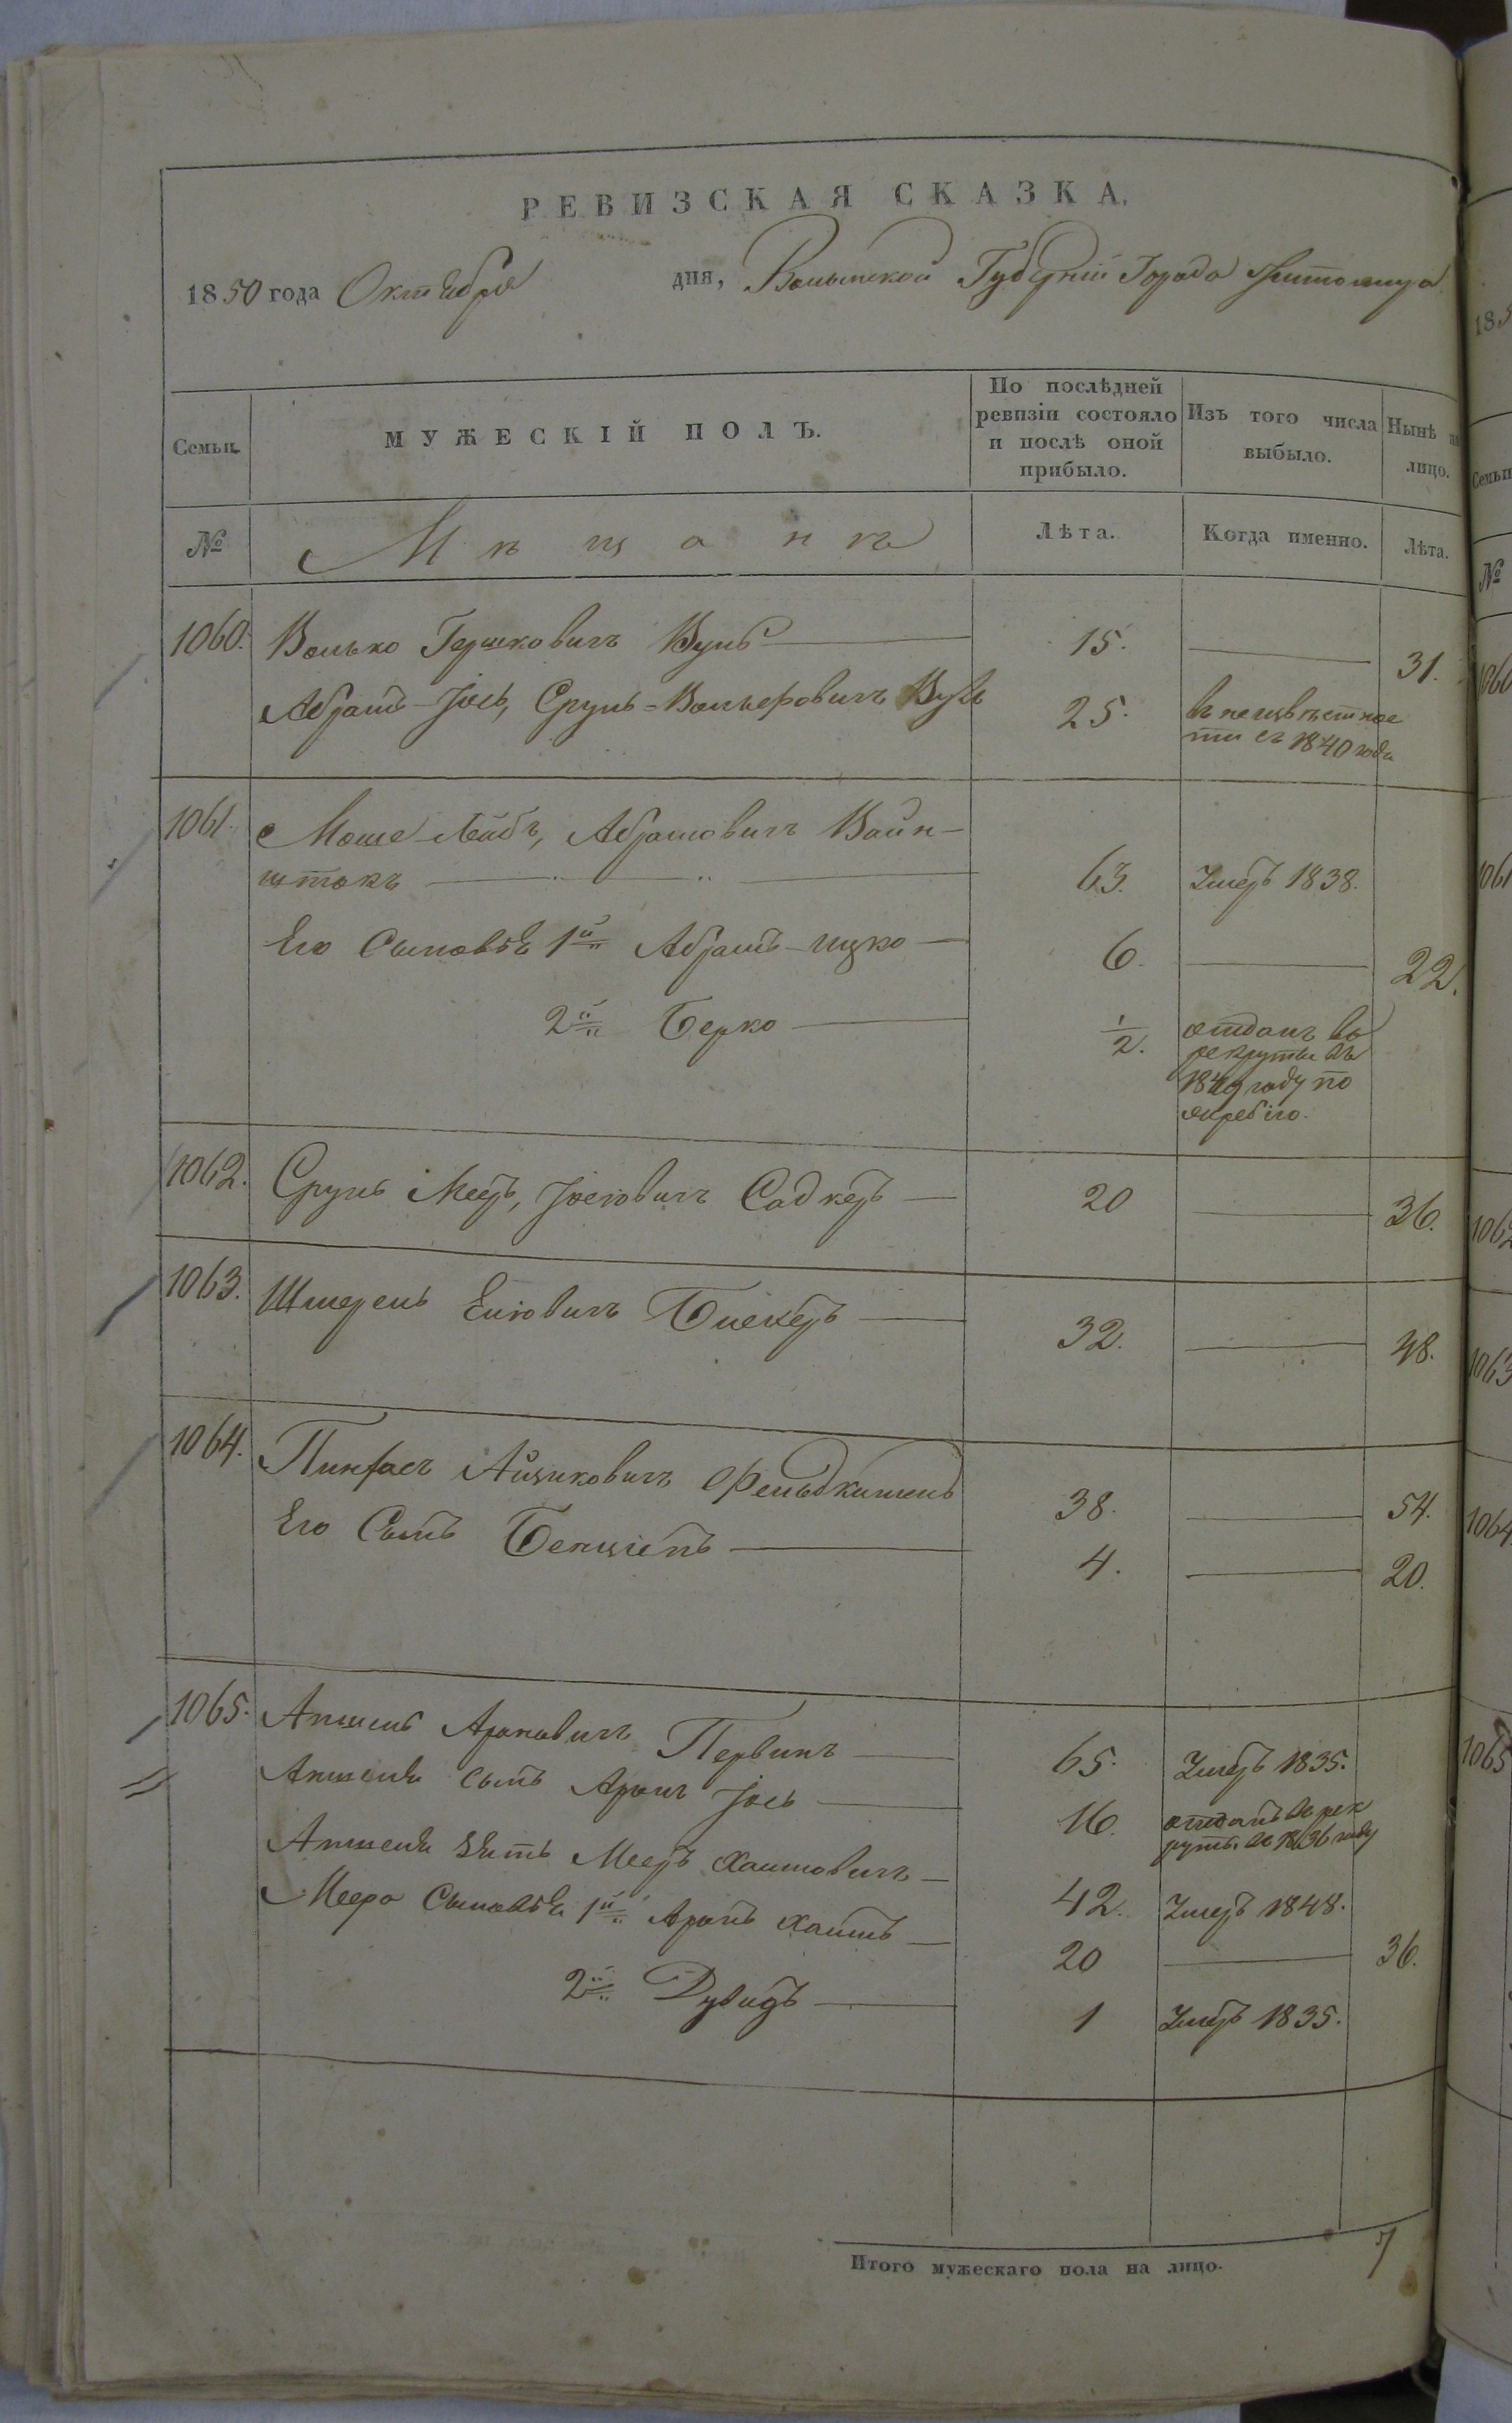 РЕВИЗСКАЯ СКАЗКА.
1850 года Октября дня, Волынской Губерніи Города Житомира
Семьи. МУЖЕСКІЙ ПОЛЪ. По послѣдней ревизіи состояло и послѣ оной прибыло. Изъ того числа выбыло. Нынѣ на лицо.
№ Мѣщанъ Лѣта. Когда именно. Лѣта.
1060. Волько Гершковичъ Вулъ 15. 31.
Абрамъ-Іось, Сруль-Вольфовичъ Вулъ 25. въ неизвѣстнос
ти съ 1840 года
1061. Моше-Лейбъ, Абрамовичъ Вайн-
штокъ 63. Умеръ 1838.
Его Сыновья 1й Абрамъ-Ицко 6. 22.
2й Берко 1/2. отданъ въ
рекруты въ
1849 году по
жребію.
1062. Сруль Мееръ, Іосіовичъ Садкеръ 20 36.
1063. Шмерель Еліовичъ Блекеръ 32. 48.
1064. Пинфасъ Айзиковичъ Фельдкименъ 38. 54.
Его Сынъ Бенціенъ 4. 20.
1065. Аншель Ароновичъ Первинъ 65. Умеръ 1835.
Аншеля сынъ Аронъ Іось 16. отданъ въ рек
руты въ 1836 году
Аншеля зять Мееръ Хаимовичъ 42. Умеръ 1848.
Меера Сыновья 1й Аронъ Хаимъ 20 36.
2й Дувидъ 1 Умеръ 1835.
Итого мужескаго пола на лицо. 7
185
Семьи
№
1060
1061
1062
1063
1064
1065